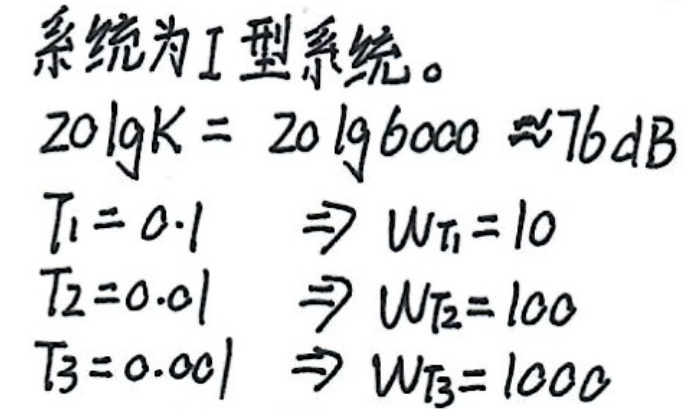 系统为I型系统。
20lgK = 20lg6000 ≈76dB
T₁=0.1 ⇒ W_T₁=10
T₂=0.01 ⇒ W_T₂=100
T₃=0.001 ⇒ W_T₃=1000